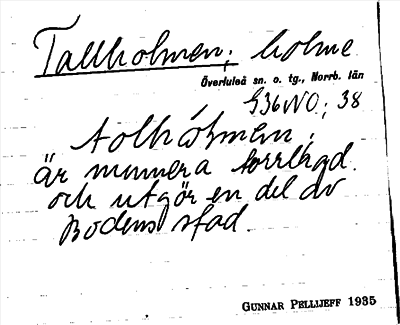 Tallholmen; holme
Överluleå sn. o. tg., Norrb. län
G36NO; 38
tolhólmen;
är numera torrlagd
och utgör en del av
Bodens stad.
GUNNAR PELLIJEFF 1935